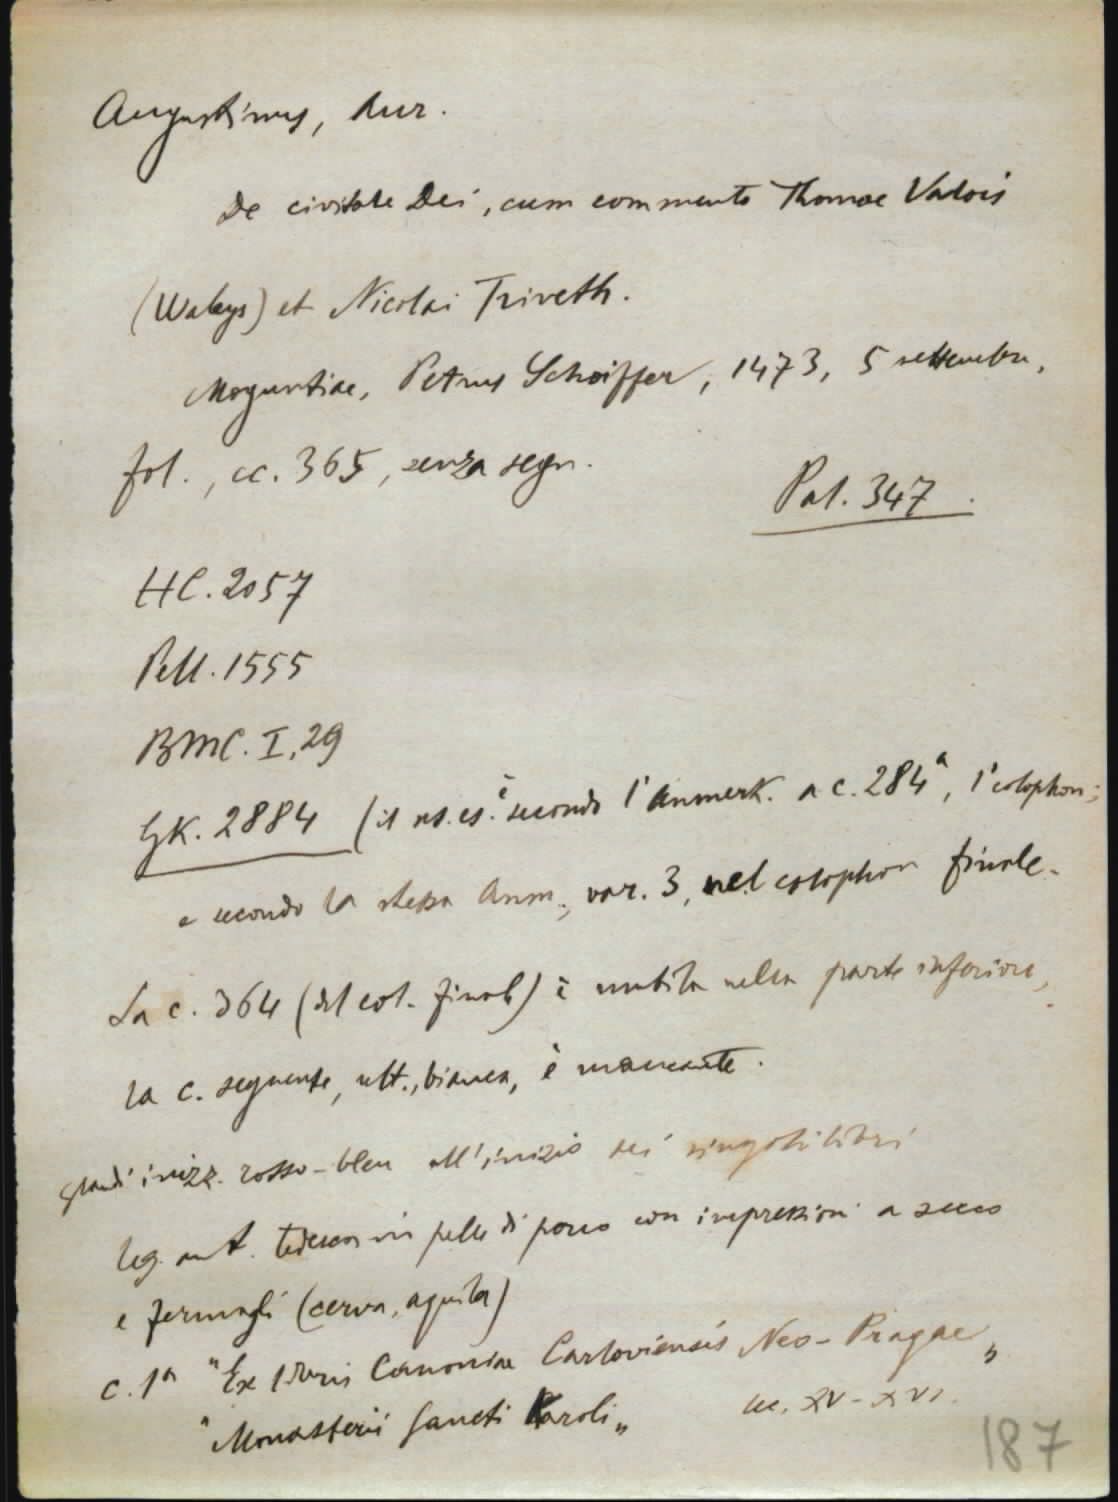 Augustinus, Aur.
De civitate Dei, cum commento Thomae Valois
(Waleys) et Nicolai Triveth.
Moguntiae, Petrus Schoiffer, 1473, 5 settembre,
fol., cc. 365, senza segn.
Pal. 347.
HC. 2057
Pell. 1555
BMC. I, 29
GK. 2884 (il ns. es. è secondo l'Anmerk. a c. 284ª, l'colophon;
e secondo la stessa Anm., var. 3, nel colophon finale.
La c. 364 (del col. finale) è mutila nella parte inferiore,
la c. seguente, ult., bianca, è mancante.
grandi inizz. rosso-bleu all'inizio dei singoli libri
leg. ant. tedesca in pelle di porco con impressioni a secco
e fermagli (cerva, aquila)
c. 1ª "Ex libris Canoniae Carloviensis Neo-Pragae„
"Monasterii Sancti Karoli„
sec. XV-XVI.
187